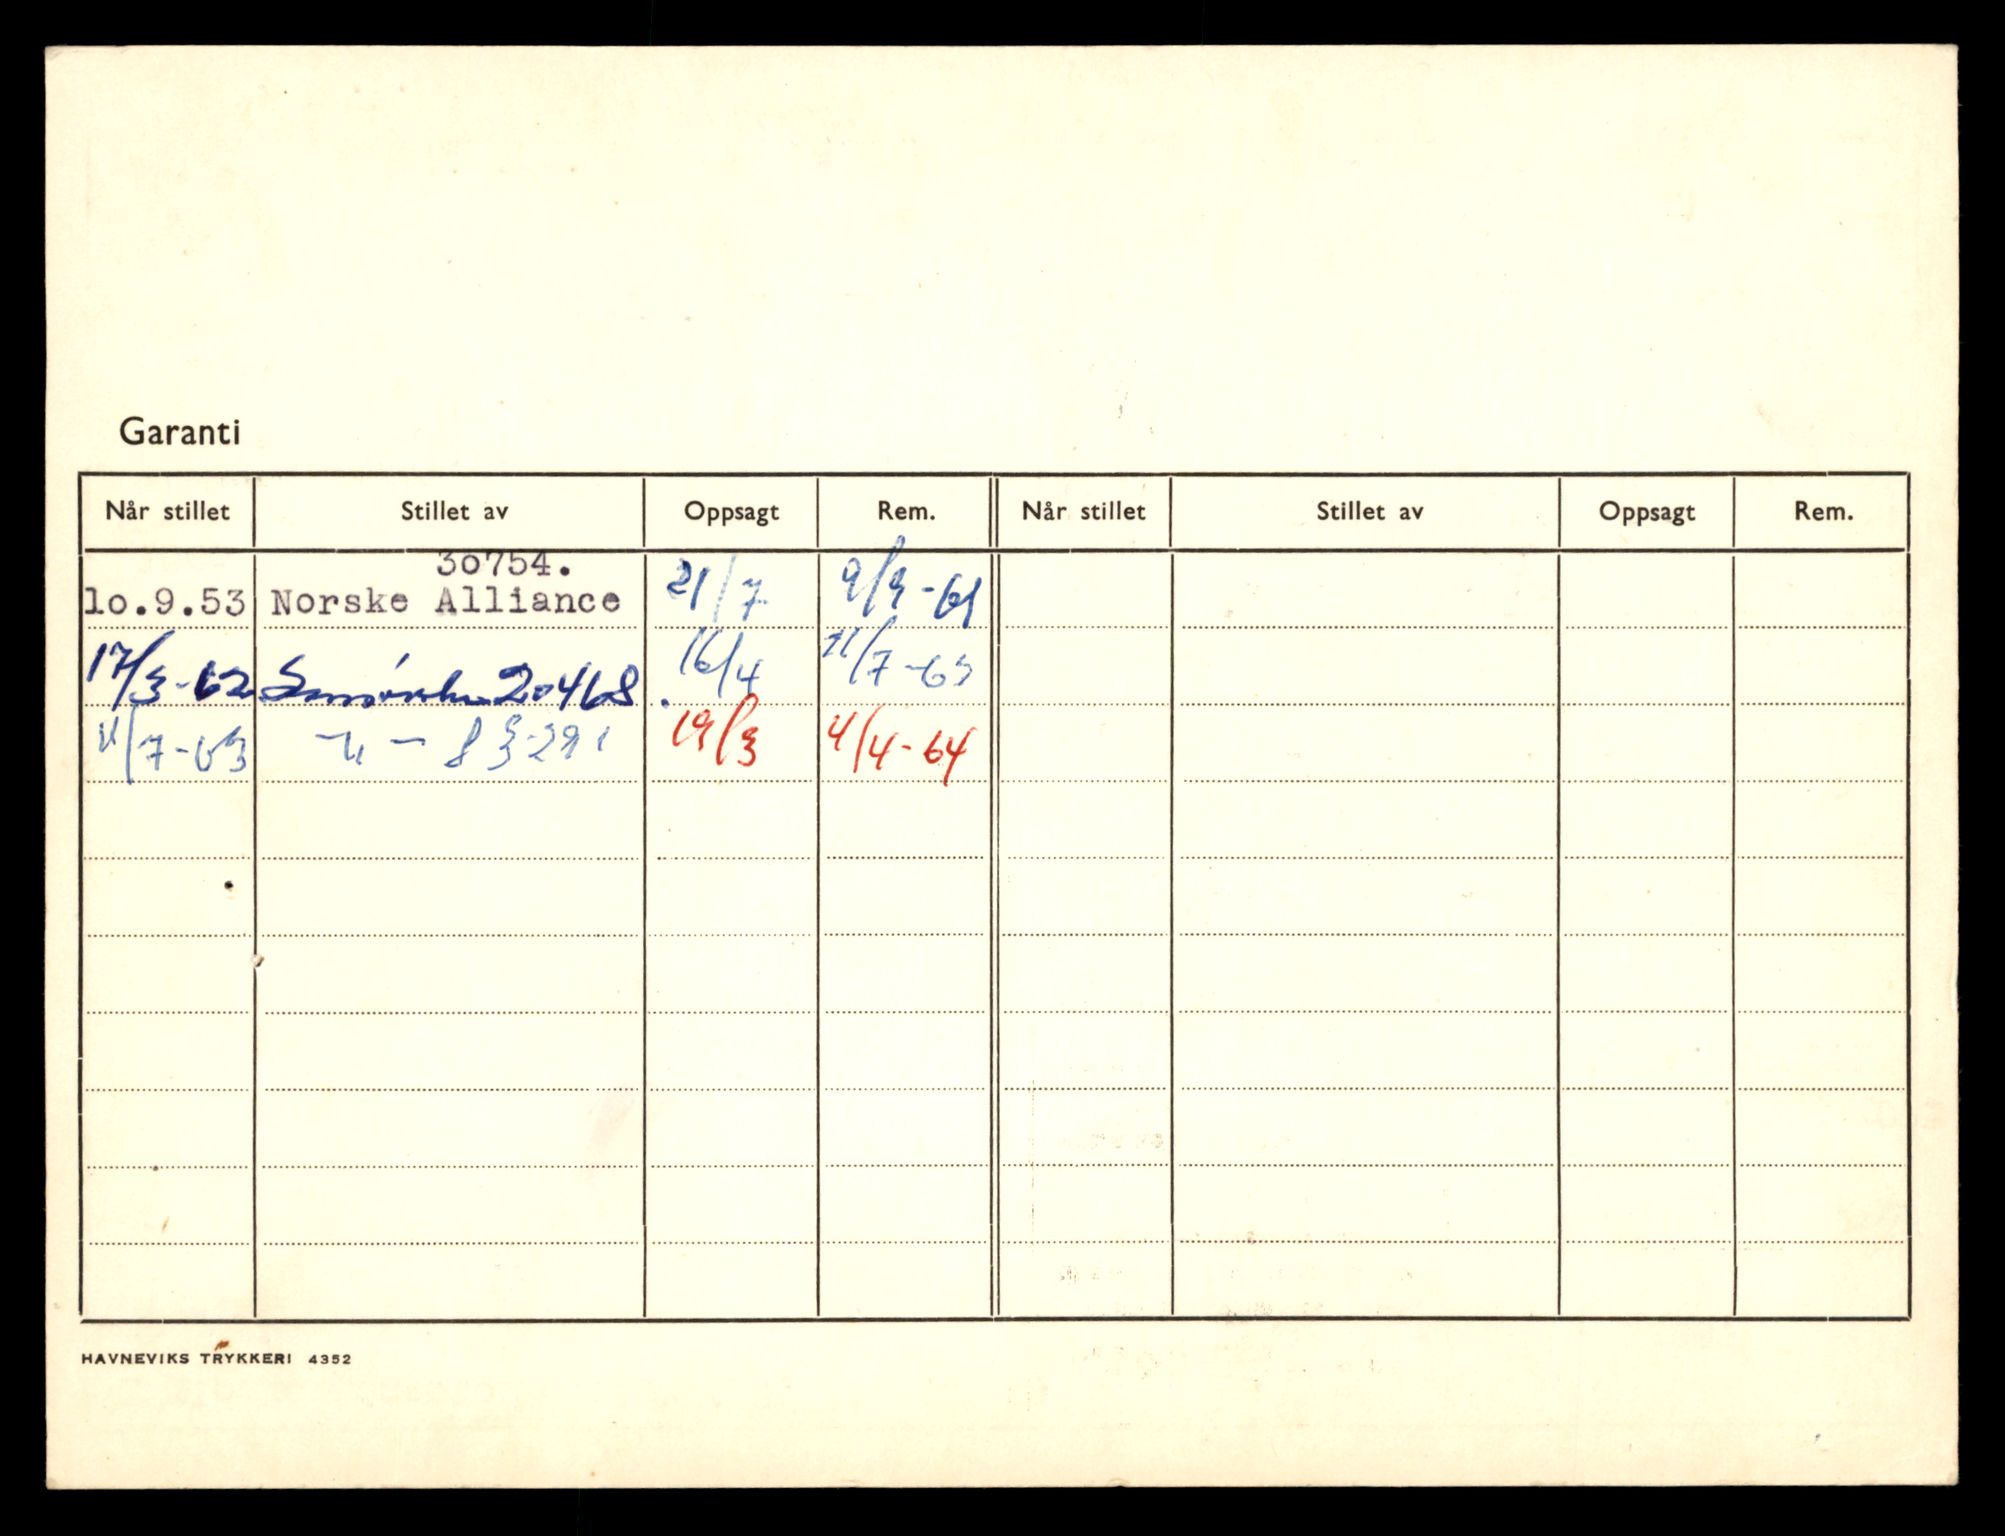 Garanti
Når stillet Stillet av Oppsagt Rem. Når stillet Stillet av Oppsagt Rem.
30754.
lo.9.53 Norske Alliance 21/7 9/3-61
17/3-62 20468 16/4 11/7-63
11/7-63 -"- 83291 19/3 4/4-64
HAVNEVIKS TRYKKERI 4352